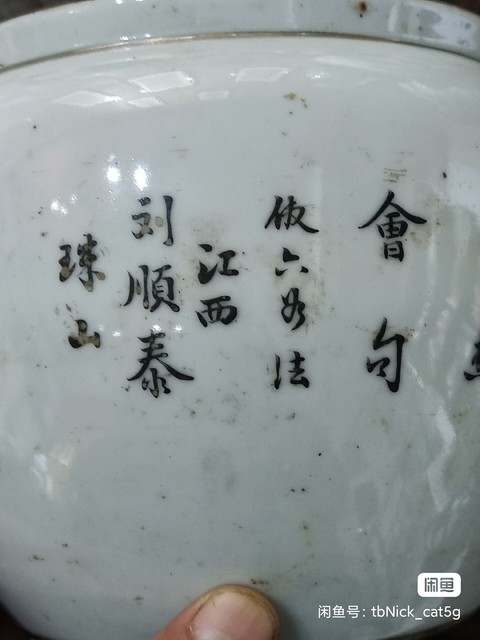 會句
仿六如法
江西
刘順泰
珠山
闲鱼
闲鱼号：tbNick_cat5g